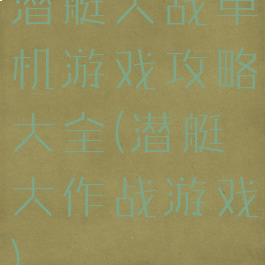 潜艇大战单
机游戏攻略
大全(潜艇
大作战游戏
)